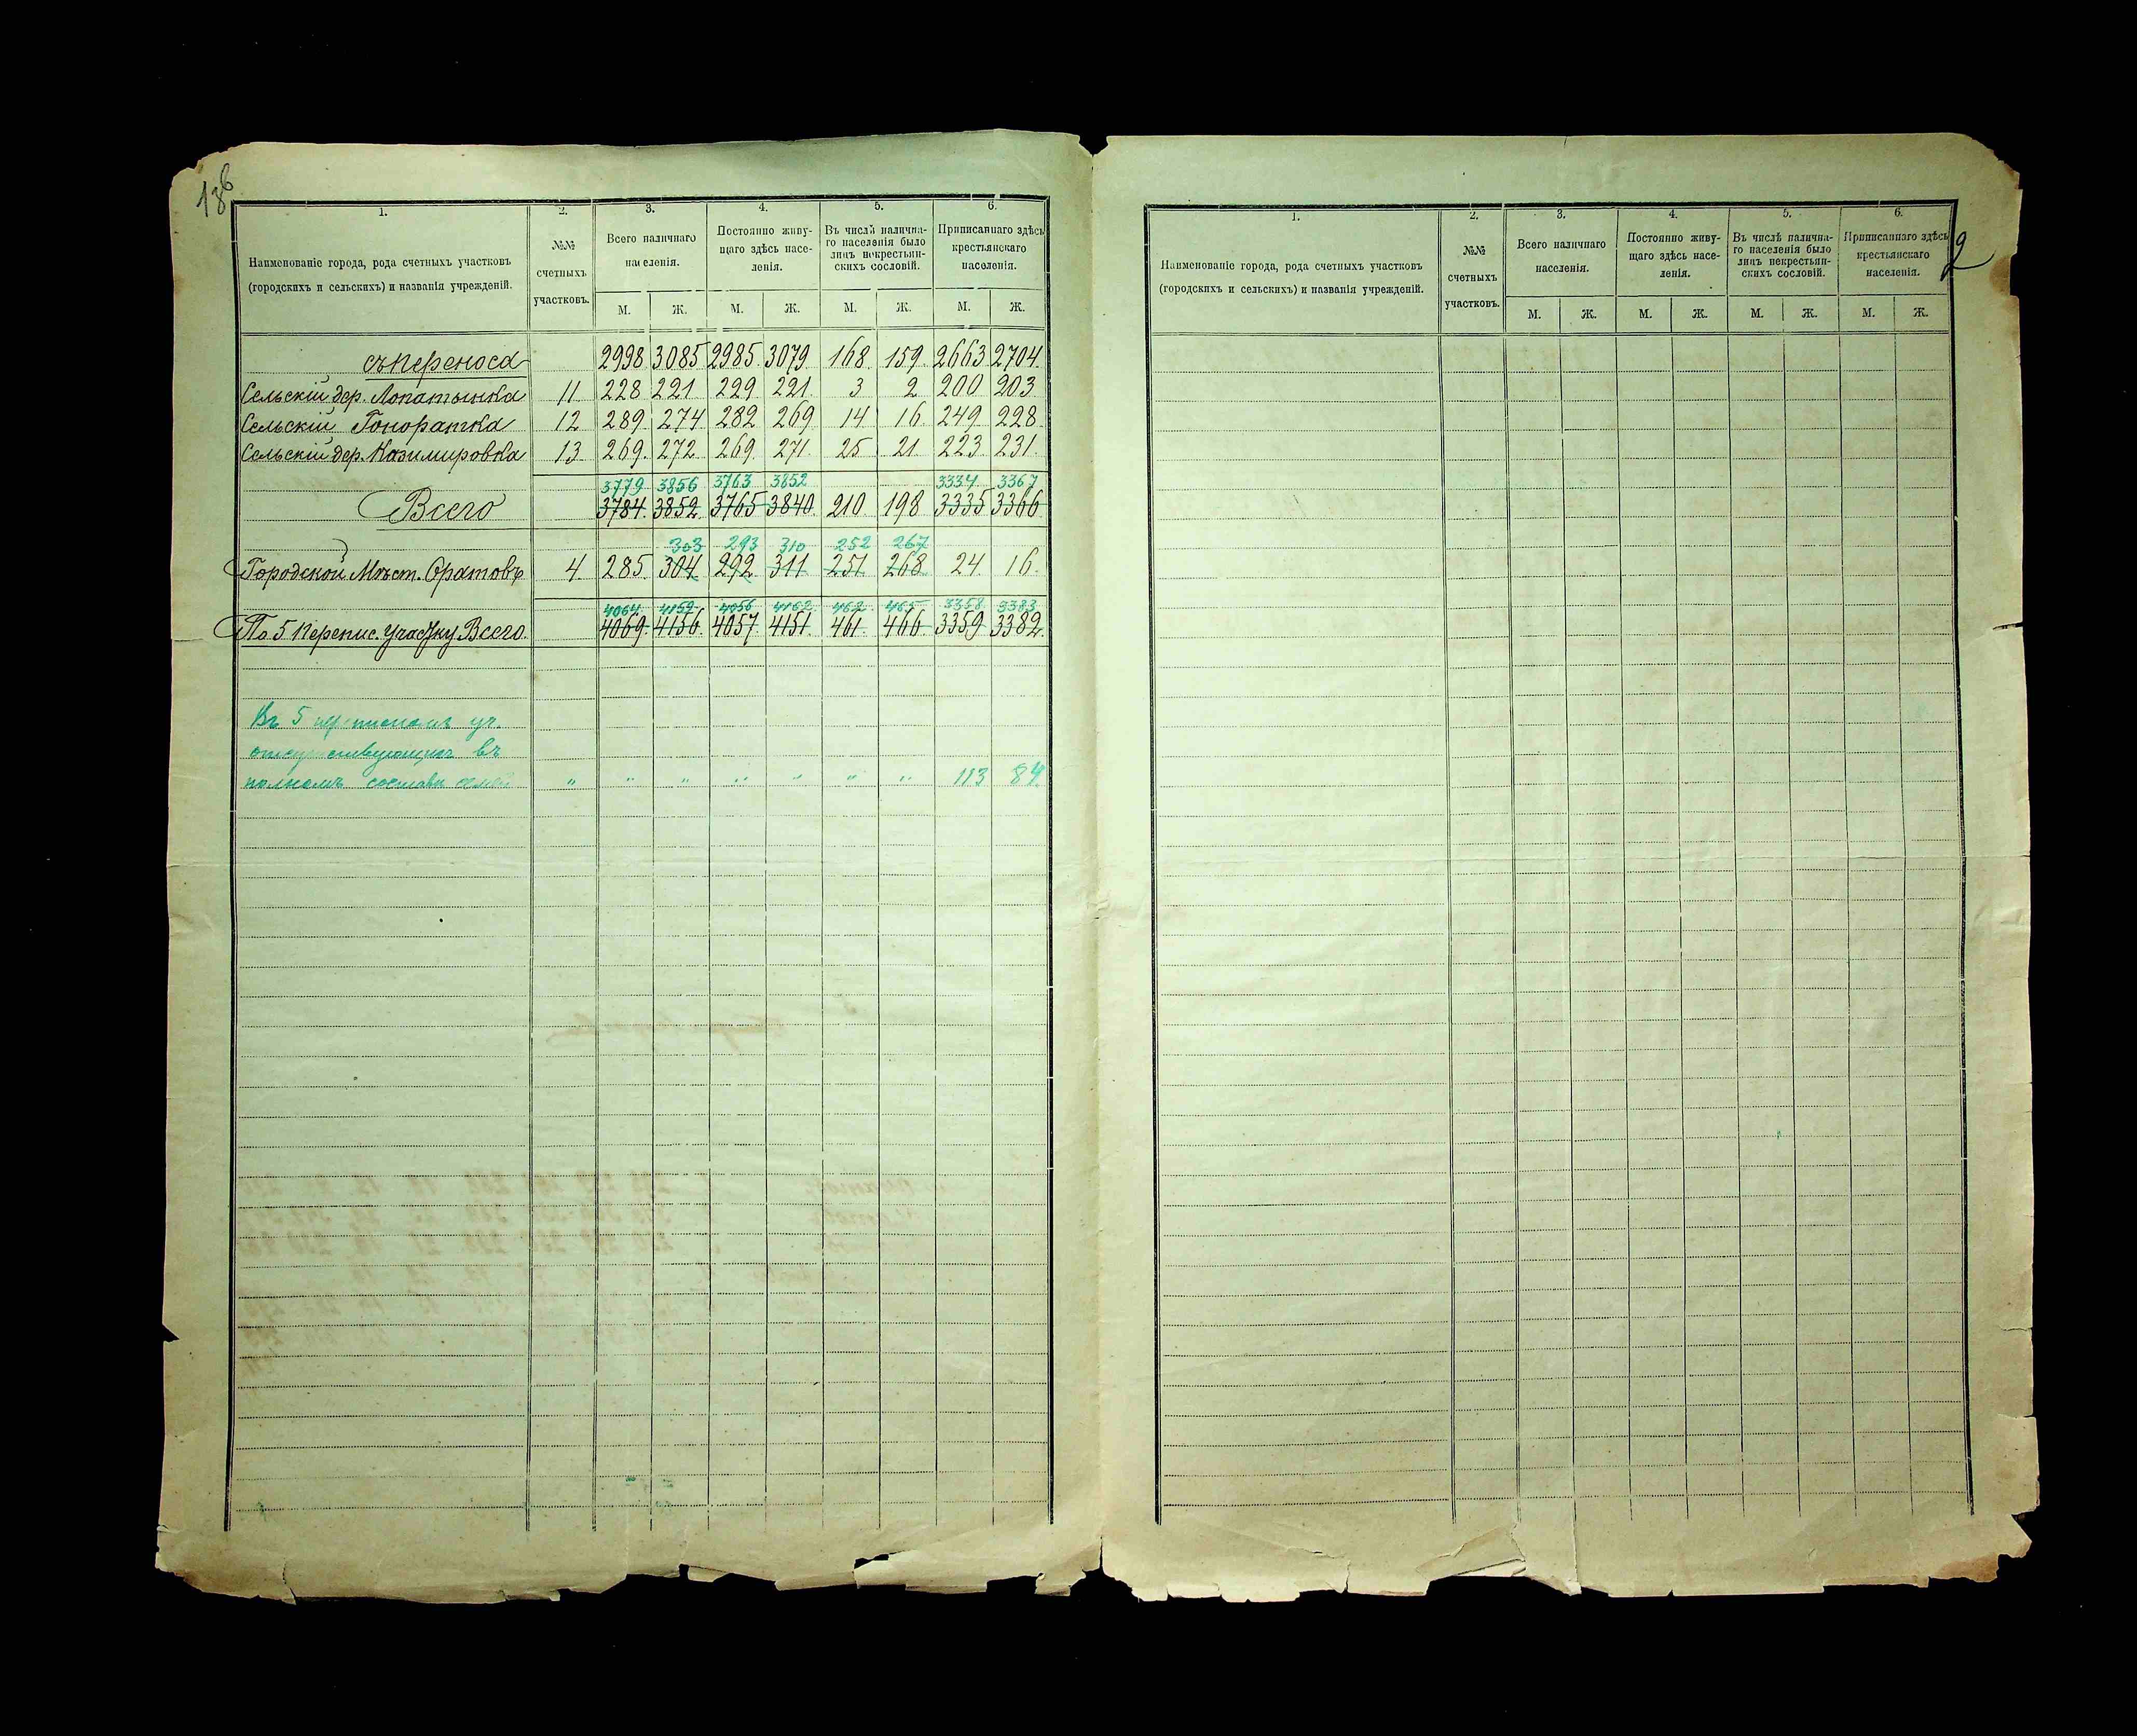 18б
1. 2. 3. 4. 5. 6.
Наименованіе города, рода счетныхъ участковъ (городскихъ и сельскихъ) и названія учрежденій.
№№ счетныхъ участковъ.
Всего наличнаго населенія.
Постоянно живущаго здѣсь населенія.
Въ числѣ наличнаго населенія было лицъ некрестьянскихъ сословій.
Приписаннаго здѣсь крестьянскаго населенія.
М. Ж. М. Ж. М. Ж. М. Ж.
съ переноса 2998 3085 2985 3079 168 159 2663 2704
Сельскій дер. Лопатинка 11 228 221 229 221 3 2 200 203
Сельскій Гоноратка 12 289 274 282 269 14 16 249 228
Сельскій дер. Казимировка 13 269 272 269 271 25 21 223 231
3779 3856 3763 3852 3334 3367
Всего 3784 3852 3765 3840 210 198 3335 3366
303 293 310 252 267
Городской Мѣст. Оратовъ 4 285 304 292 311 251 268 24 16
4064 4159 4056 4162 462 465 3358 3383
По 5 Перепис. участку Всего 4069 4156 4057 4151 461 466 3359 3382
Въ 5 переписномъ уч.
отсутствующихъ въ
полномъ составѣ семей " " " " " " " 113 84
2
1. 2. 3. 4. 5. 6.
Наименованіе города, рода счетныхъ участковъ (городскихъ и сельскихъ) и названія учрежденій.
№№ счетныхъ участковъ.
Всего наличнаго населенія.
Постоянно живущаго здѣсь населенія.
Въ числѣ наличнаго населенія было лицъ некрестьянскихъ сословій.
Приписаннаго здѣсь крестьянскаго населенія.
М. Ж. М. Ж. М. Ж. М. Ж.